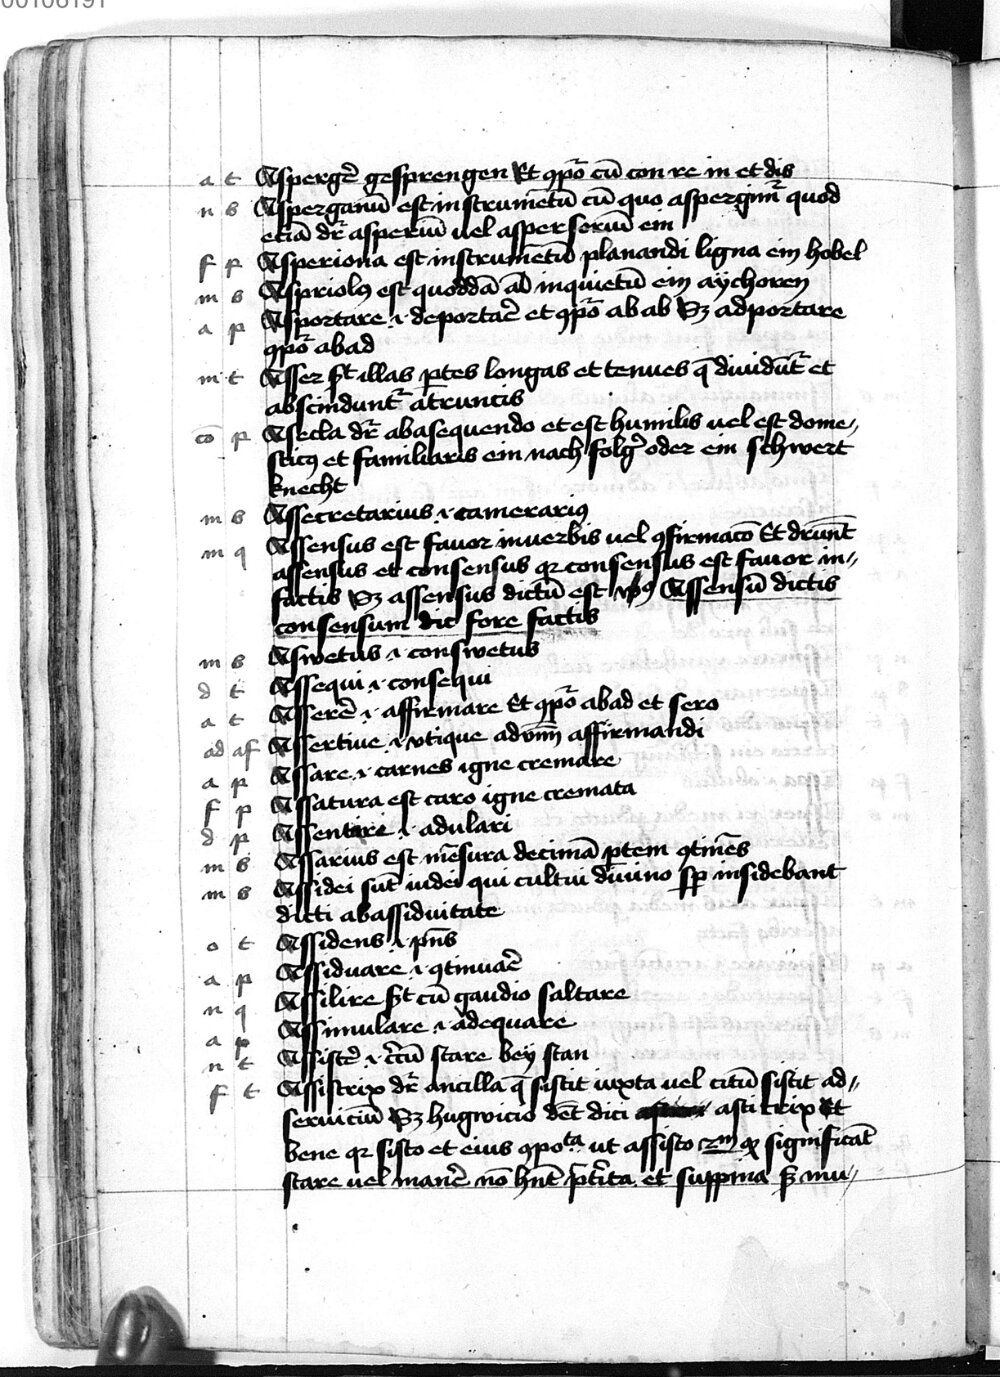 00106191
a t Aspergẽ gesprengen Et ꝯpõ cũ con re in et dis
n s Asperganũ est instrumẽtũ cũ quo aspergimꝰ quod
etiã dr̃ asperiũ uel aspersoriũ ein
f p Asperiona est instrumẽtũ planandi ligna ein hobel
m s Aspriolꝰ est quoddã aĩal inquietũ ein aychoren
a p Asportare .i. deportaẽ et ꝯpõ ab ab Sꝫ adportare
ꝯpõ ab ad
m t Asser sũt illas ꝑtes longas et tenues q̃ diuidũt̃ et
abscindunt̃ a truncis
cõ p Asecla dr̃ ab asequendo et est humilis uel est dome⸗
sticꝰ et familiaris ein nach folg̃ oder ein schwert
knecht
m s Assecretarius .i. camerariꝰ
m q Assensus est fauor in uerbis uel ꝯfirmacõ Et dr̃unt
assensus et consensus qr̃ consensus est fauor in⸗
factis Sꝫ assensus dictũ est vsꝰ Assensũ dictis
consensum dic fore factis
m s Aswetus .i. conswetus
d t Assequi .i. consequi
a t Asserẽ .i. affirmare Et ꝯpõ ab ad et sero
ad af Assertiue .i. vtique aduũ affirmandi
a p Assare .i. carnes igne cremare
f p Assatura est caro igne cremata
d p Assentire .i. adulari
m s Assarius est mẽsura decimã ꝑtem ꝯtinẽs
m s Assidei sũt iudei qui cultui diuino sꝑ insidebant
dicti ab assiduitate
o t Assidens .i. pñs
a p Assiduare .i. ꝯtinuaẽ
n q Assilire sꝫt cũ gaudio saltare
a p Assimulare .i. adequare
n t Assistẽ .i. c̃cũ stare bey stan
f t Assistrix dr̃ ancilla q̃ sistit iuxta uel citũ sistit ad⸗
seruiciũ Sꝫ hugwicio dẽt dici asti trix Et
bene qr̃ sisto et eius ꝯpoᵗᵃ ut assisto ꝝm ꝙ significãt
stare uel manẽ nõ hñt p̃tita et suppina sꝫ mu⸗